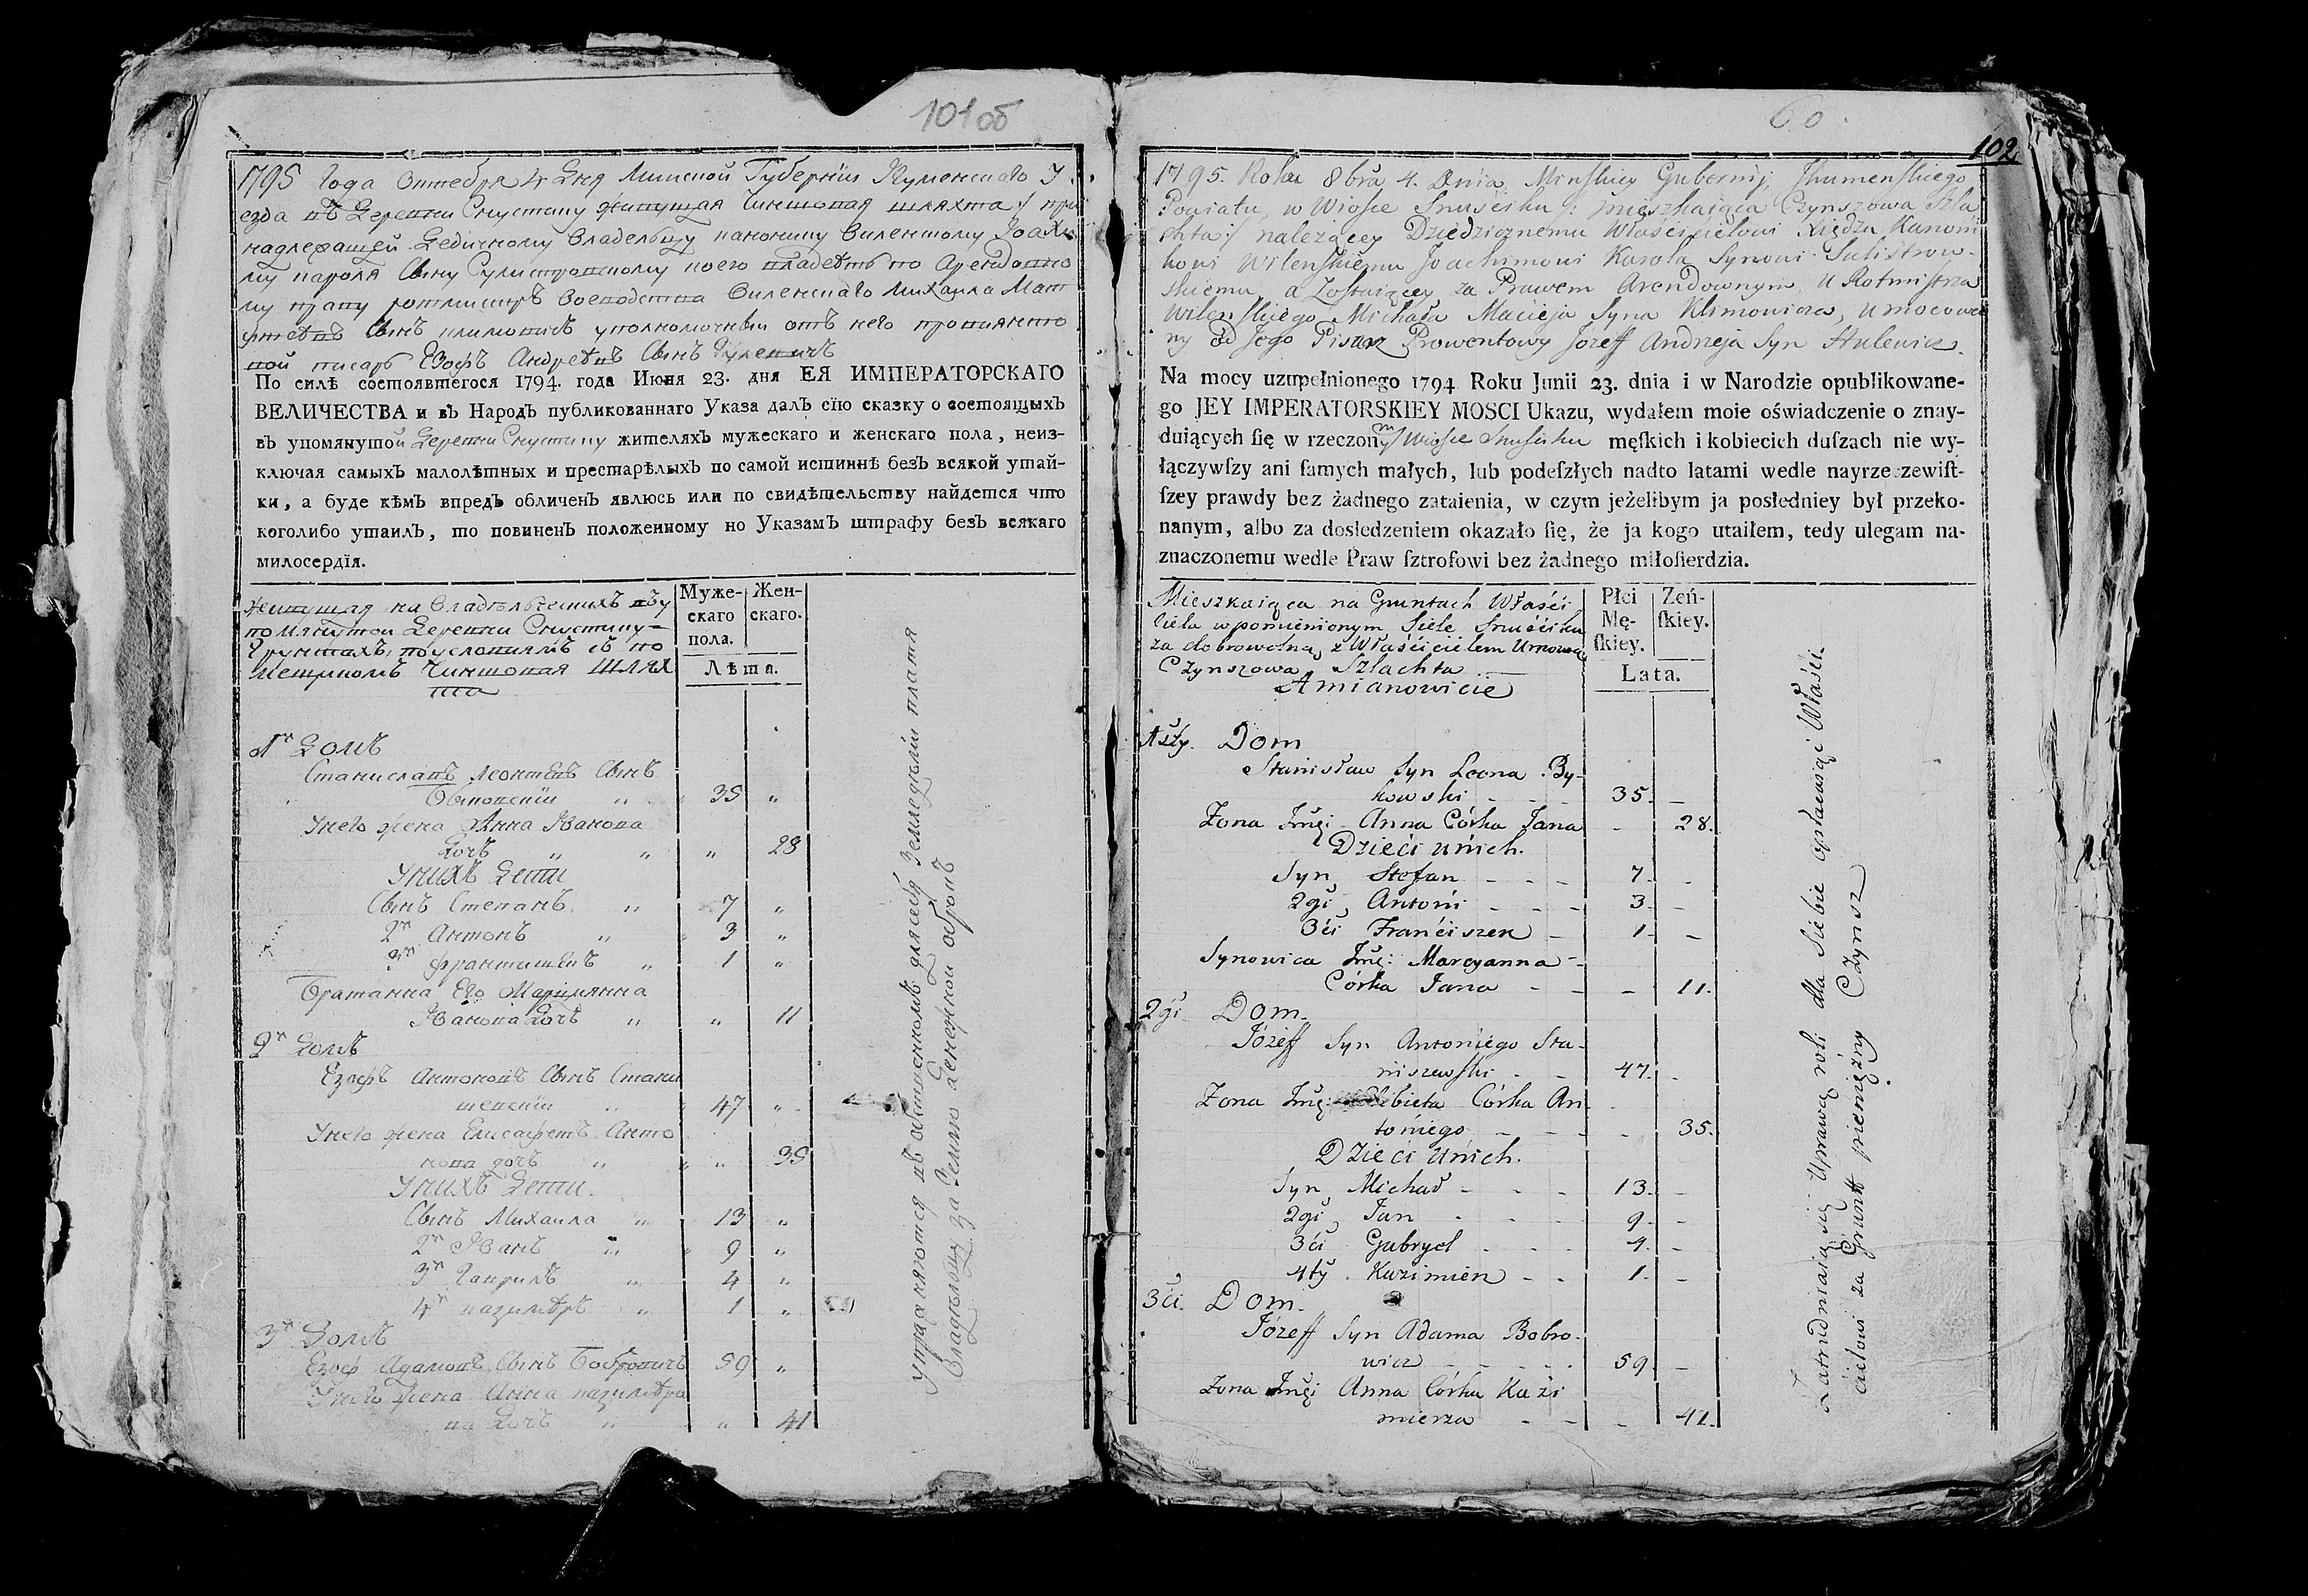 101об
1795 Года Октебря 4 Дня Минской Губернии Игуменскаго У
езда въ Деревни Снустику живущая Чиншовая шляхта :/ при
надлежащей Едичному Владельцу канонику Виленскому Іоахи
му Кароля Сыну Сулистровскому коего владеетъ по Арендовно
му праву ротмистръ Воеводства Виленскаго Михаила Мат
феевъ Сынъ Климовичъ уполномочный отъ него провиянто
вой писарь Езофъ Андреевъ Сынъ
По силѣ состоявшегося 1794. года Июня 23. дня ЕЯ ИМПЕРАТОРСКАГО
ВЕЛИЧЕСТВА и въ Народъ публикованнаго Указа далъ сїю сказку о состоящыхъ
въ упомянутой Деревни Снустику жителяхъ мужескаго и женскаго пола, неиз-
ключая самыхъ малолѣтныхъ и престарѣлыхъ по самой истиннѣ безъ всякой утай-
ки, а буде кѣмъ впредь обличенъ явлюсь или по свидѣтельству найдется что
коголибо утаилъ, то повиненъ положенному по Указамъ штрафу безъ всякаго
милосердїя.
живущая на Владѣльческихъ въ у
помянутой Деревни Снустику
Грунтахъ, по условиямъ съ по
мещикомъ Чиншовая Шлях
та
Муже-
скаго
пола.
Жен-
скаго.
Лѣта.
1й Домъ
Станиславъ Леонтевъ Сынъ
Быковский " 35 "
У него жена Анна Иванова
Дочь " " " 28
У нихъ Дети
Сынъ Степанъ " 7 "
2й Антонъ " 3 "
3й Франтишекъ " 1 "
Братанка Его Марциянна
Иванова Дочь " " 11
2й Домъ
Езофъ Антоновъ Сынъ Стани
шевский " 47 "
У него жена Елисафетъ Анто
нова дочь " " 35
У нихъ Дети
Сынъ Михаила " 13 "
2й Иванъ " 9 "
3й Гаврилъ " 4 "
4й казимѣръ " 1 "
3й Домъ
Езоф Адамовъ Сынъ Бобровичъ 59 "
У него жена Анна казимѣра
на Дочь " " 41
Упражняются въ обственномъ для себя Земледѣлии платя
Владѣльцу за Землю денежной оброкъ
60
102
1795. Roku 8bra 4. Dnia, Minskiey Gubernij, Ihumenskiego
Powiatu, w Wiosce Snusciku /: mieszkaiąca Czynszowa Szla
chta :/ należącey Dziedzicznemu Włascicielowi Xiędzu Kanoni
kowi Wilenskiemu Joachimowi Karola Synowi Sulistrow-
skiemu, a Zostaiącey za Prawem Arendownym, u Rotmistrza
Wilenskiego Michała Macieja Syna Klimowicza, umocowa
ny od Jego Pisarz Prowentowy Jozeff Andrzeja Syn Hulewicz.
Na mocy uzupełnionego 1794 Roku Junii 23. dnia i w Narodzie opublikowane-
go JEY IMPERATORSKIEY MOSCI Ukazu, wydałem moie oświadczenie o znay-
duiących ſię w rzeczony Wiosce Snusciku męſkich i kobiecich duſzach nie wy-
łączywſzy ani ſamych małych, lub podeſzłych nadto latami wedle nayrzeczewiſt-
ſzey prawdy bez żadnego zataienia, w czym jeżelibym ja posłedniey był przeko-
nanym, albo za dosledzeniem okazało ſię, że ja kogo utaiłem, tedy ulegam na-
znaczonemu wedle Praw ſztrofowi bez żadnego miłoſierdzia.
Mieszkaiąca na Gruntach Właści
ciela wpomienionym Siele Snuściku
za dobrowolną, z Właścicielem Umową
Czynszowa Szlachta
Amianowicie
Płci
Mę-
ſkiey.
Zeń-
ſkiey.
Lata.
1szy. Dom
Stanisław Syn Leona By-
kowski - - 35. -
Zona Jmęi Anna Córka Jana - 28.
Dzieci unich.
Syn, Stefan - - - 7. -
2gi, Antoni - - - 3. -
3ci Franciszek - 1. -
Synowica Jmęi: Maryanna -
Córka Jana - - - 11.
2gi Dom.
Józeff Syn Antoniego Sta-
niszewski - - 47. -
Zona Jmęi: Elżbieta Córka An-
toniego - - - 35.
Dzieci unich.
Syn, Michał - - - 13. -
2gi, Jan - - - 9. -
3ci Gabryel - - - 4. -
4ty. Kazimierz - - 1. -
3ci. Dom.
Józeff Syn Adama Bobro-
wicz - - - - 59. -
Zona Jmęi Anna Córka Kazi
mierza - - - 41.
Zatrudniaią się Uprawą roli dla Siebie opłacaiąc Właści
cielowi za Grunt pieniężny Czynsz